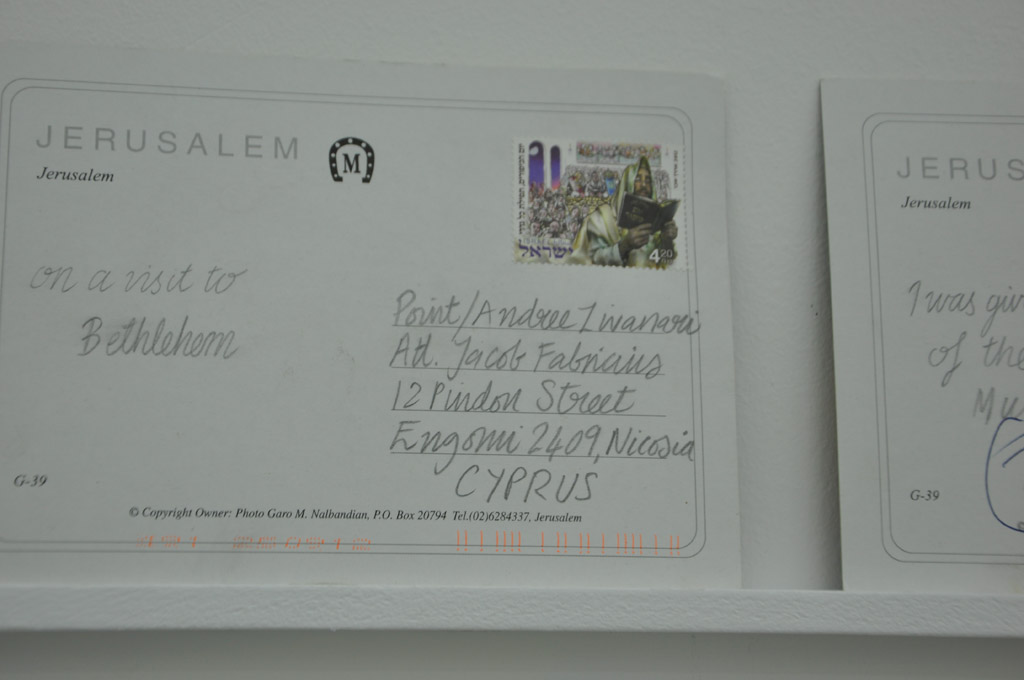 JERUSALEM
Jerusalem
M
ישראל
4.20
on a visit to
Bethlehem
Point/Andree Zivanari
Att. Jacob Fabricius
12 Pindon Street
Engomi 2409, Nicosia
CYPRUS
G-39
© Copyright Owner: Photo Garo M. Nalbandian, P.O. Box 20794 Tel.(02)6284337, Jerusalem
JERUS
Jerusalem
I was giv
of the
Mu
G-39